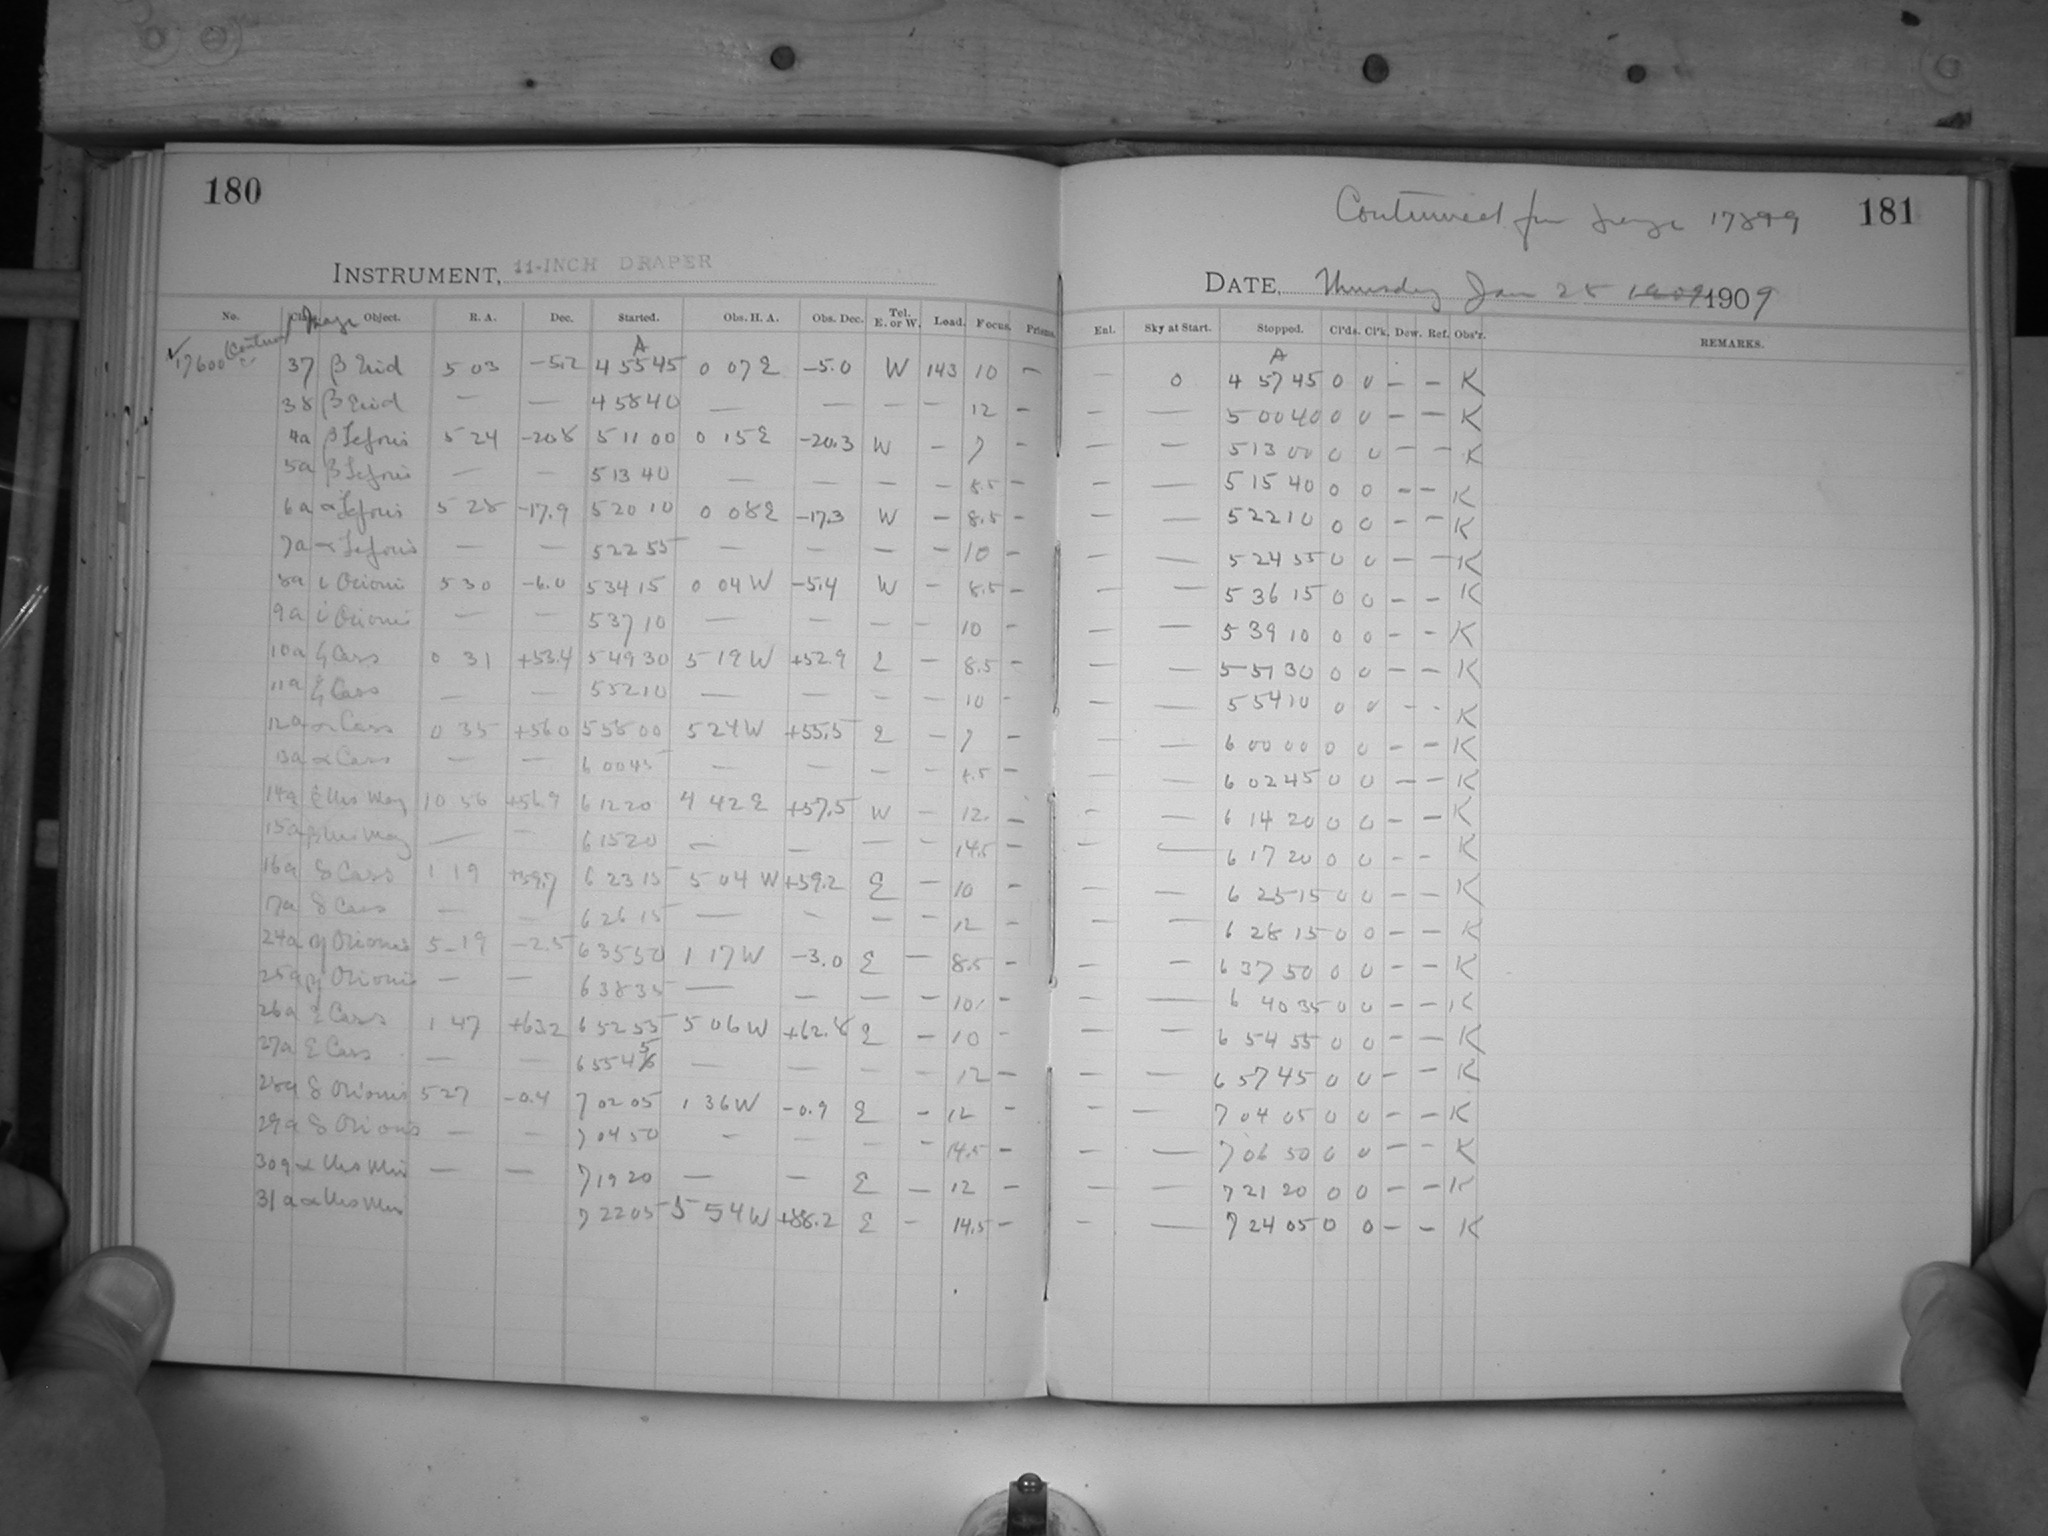 180
INSTRUMENT, 11-INCH DRAPER
No. Image Object. R. A. Dec. Started. Obs. H. A. Obs. Dec. Tel. E. or W. Load. Focus. Prisms.
A
17600 37 β Erid 5 03 -5.2 4 55 45 0 07 E -5.0 W 143 10 —
38 β Erid — — 4 58 40 — — — — 12 —
4a β Leporis 5 24 -20.8 5 11 00 0 15 E -20.3 W — 7 —
5a β Leporis — — 5 13 40 — — — — 8.5 —
6a α Leporis 5 28 -17.9 5 20 10 0 08 E -17.3 W — 8.5 —
7a α Leporis — — 5 22 55 — — — — 10 —
8a ι Orionis 5 30 -6.0 5 34 15 0 04 W -5.4 W — 8.5 —
9a ι Orionis — — 5 37 10 — — — — 10 —
10a ζ Cass 0 31 +53.4 5 49 30 5 19 W +52.9 E — 8.5 —
11a ζ Cass — — 5 52 10 — — — — 10 —
12a α Cass 0 35 +56.0 5 58 00 5 24 W +55.5 E — 7 —
13a α Cass — — 6 00 45 — — — — 8.5 —
14a Urs Maj 10 56 +56.9 6 12 20 4 42 E +57.5 W — 12. —
15a β Urs Maj — — 6 15 20 — — — — 14.5 —
16a δ Cass 1 19 +59.7 6 23 15 5 04 W +59.2 E — 10 —
17a δ Cass — — 6 26 15 — — — — 12 —
24a η Orionis 5 19 -2.5 6 35 50 1 17 W -3.0 E — 8.5 —
25a η Orionis — — 6 38 35 — — — — 10. —
26a ε Cass 1 47 +63.2 6 52 55 5 06 W +62.8 E — 10 —
27a ε Cass — — 6 55 45 — — — — 12 —
28a δ Orionis 5 27 -0.4 7 02 05 1 36 W -0.9 E — 12 —
29a δ Orionis — — 7 04 50 — — — — 14.5 —
30a α Urs Min — — 7 19 20 — — E — 12 —
31a α Urs Min 7 22 05 5 54 W +88.2 E — 14.5 —
181
Continued 17899
DATE, Thursday Jan 28 1909 1909
Enl. Sky at Start. Stopped. Cl'ds. Cl'k. Dew. Ref. Obs'r. REMARKS.
A
— 0 4 57 45 0 0 — — K
— — 5 00 40 0 0 — — K
— — 5 13 00 0 0 — — K
— — 5 15 40 0 0 — — K
— — 5 22 10 0 0 — — K
— — 5 24 55 0 0 — — K
— — 5 36 15 0 0 — — K
— — 5 39 10 0 0 — — K
— — 5 51 30 0 0 — — K
— — 5 54 10 0 0 — — K
— — 6 00 00 0 0 — — K
— — 6 02 45 0 0 — — K
— — 6 14 20 0 0 — — K
— — 6 17 20 0 0 — — K
— — 6 25 15 0 0 — — K
— — 6 28 15 0 0 — — K
— — 6 37 50 0 0 — — K
— — 6 40 35 0 0 — — K
— — 6 54 55 0 0 — — K
— — 6 57 45 0 0 — — K
— — 7 04 05 0 0 — — K
— — 7 06 50 0 0 — — K
— — 7 21 20 0 0 — — K
— — 7 24 05 0 0 — — K